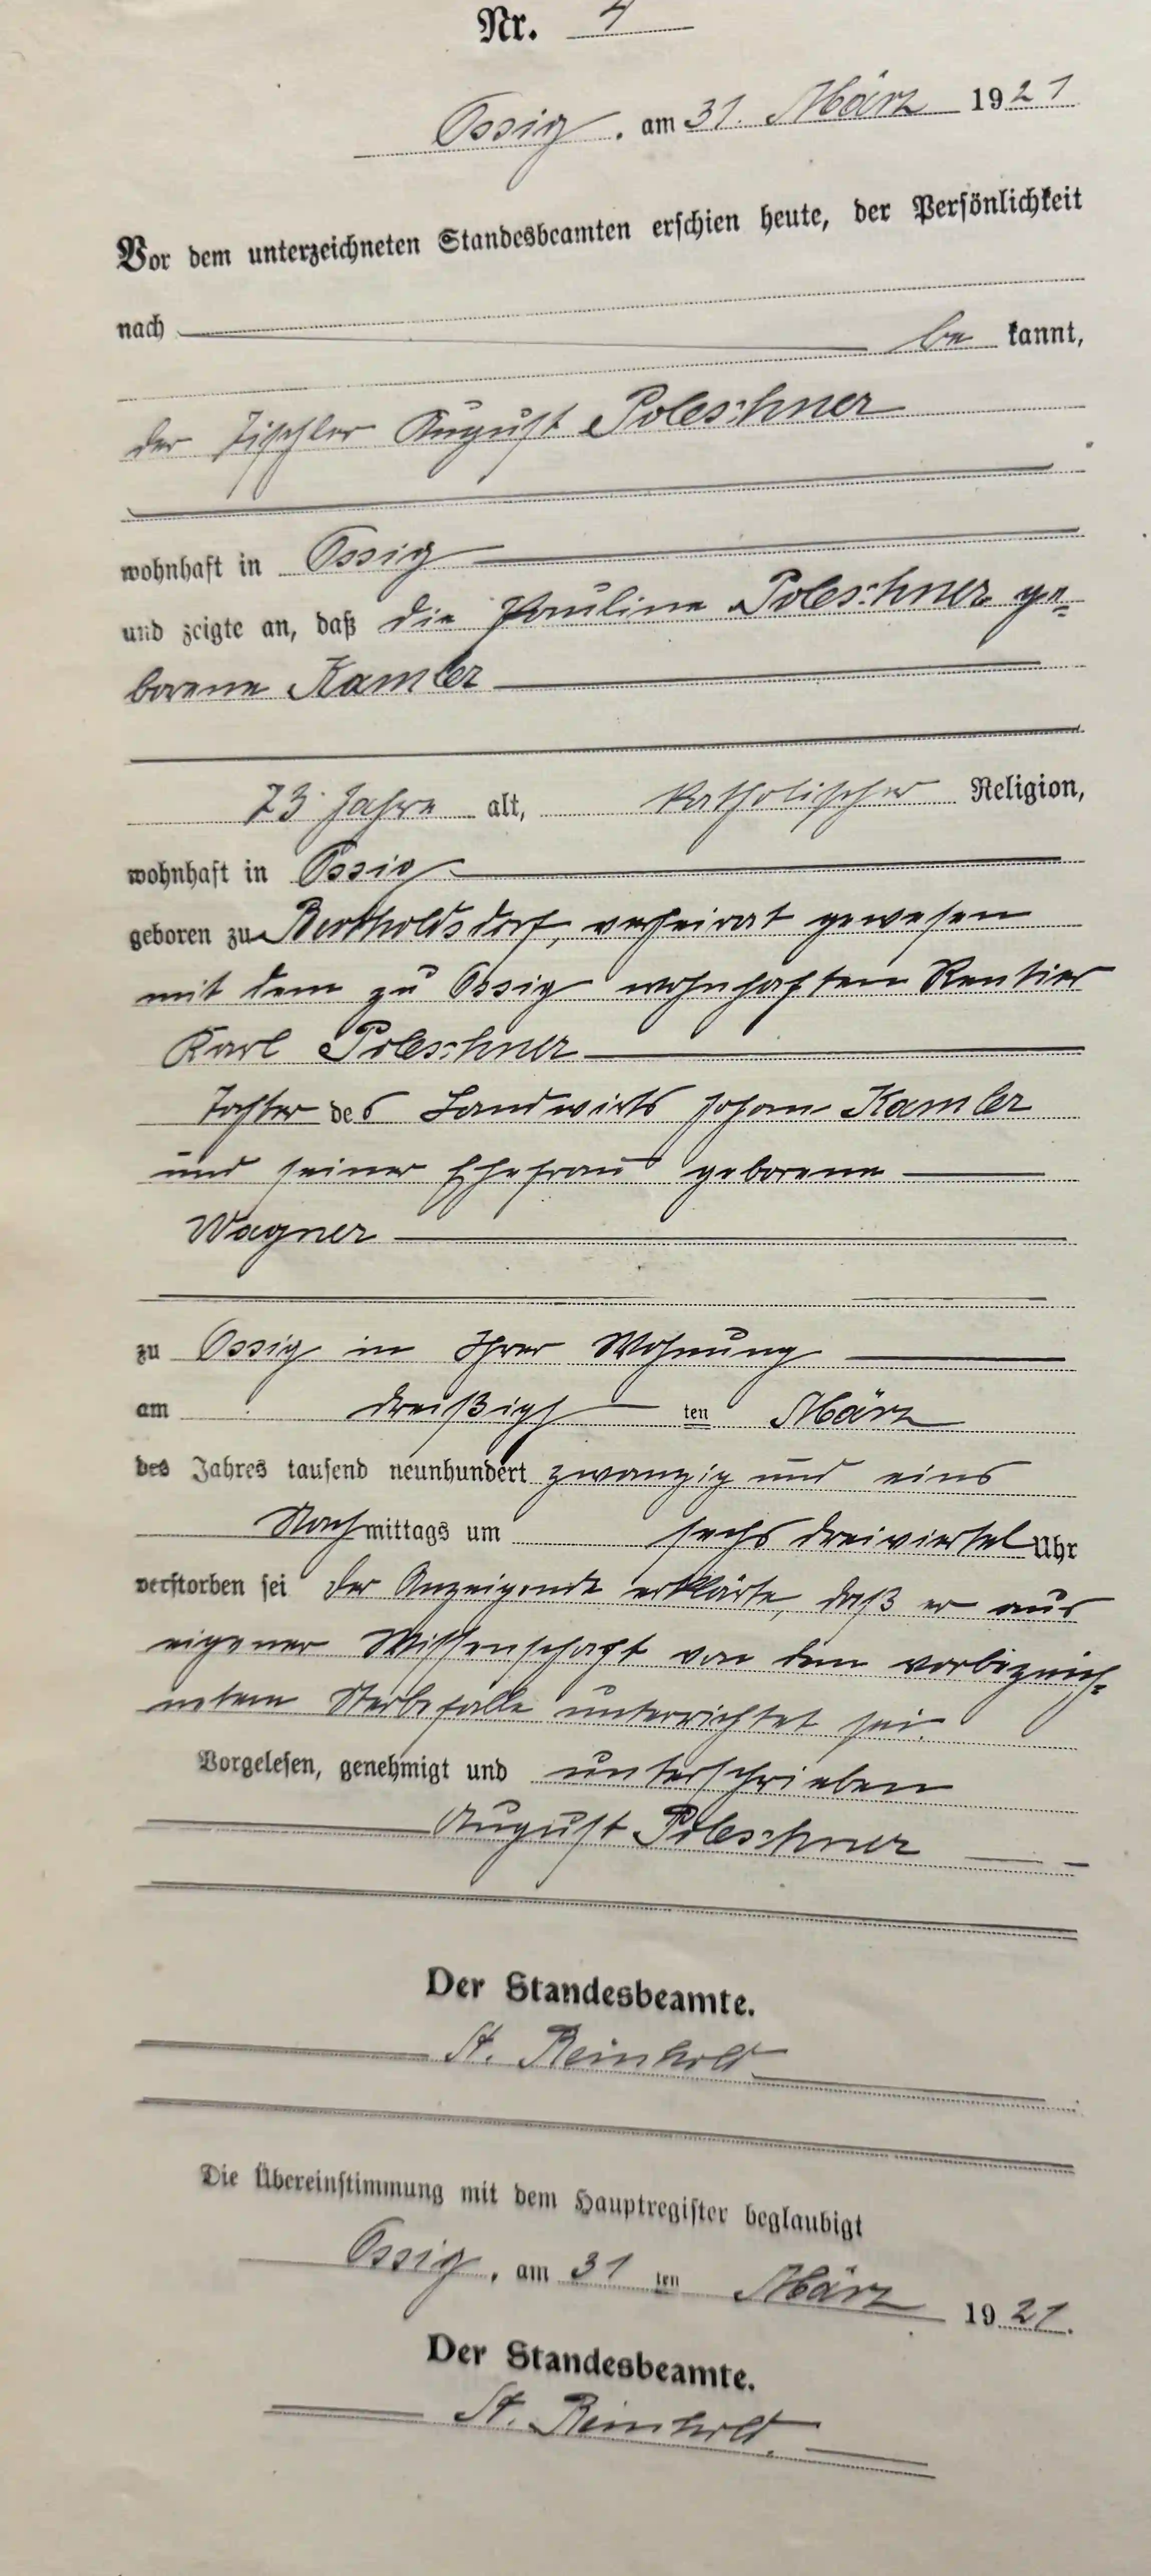 Nr. 4
Ossig, am 31. März 1921
Vor dem unterzeichneten Standesbeamten erschien heute, der Persönlichkeit
nach
be kannt,
der Tischler August Poleschner
wohnhaft in Ossig
und zeigte an, daß die Pauline Poleschner ge-
borene Kamler
73 Jahre alt, katholischer Religion,
wohnhaft in Ossig
geboren zu Bertholdsdorf, verheirat gewesen
mit dem zu Ossig wohnhaften Rentier
Karl Poleschner
Tochter des Landwirts Johann Kamler
und seiner Ehefrau geborene
Wagner
zu Ossig in Ihrer Wohnung
am dreißigs ten März
des Jahres tausend neunhundert zwanzig und eins
Nachmittags um sechs dreiviertel Uhr
verstorben sei Der Anzeigende erklärte, daß er aus
eigener Wissenschaft von dem vorbezeich-
neten Sterbefalle unterrichtet sei.
Vorgelesen, genehmigt und unterschrieben
August Poleschner
Der Standesbeamte.
St. Reinhold
Die Übereinstimmung mit dem Hauptregister beglaubigt
Ossig, am 31 ten März 1921.
Der Standesbeamte.
St. Reinhold.